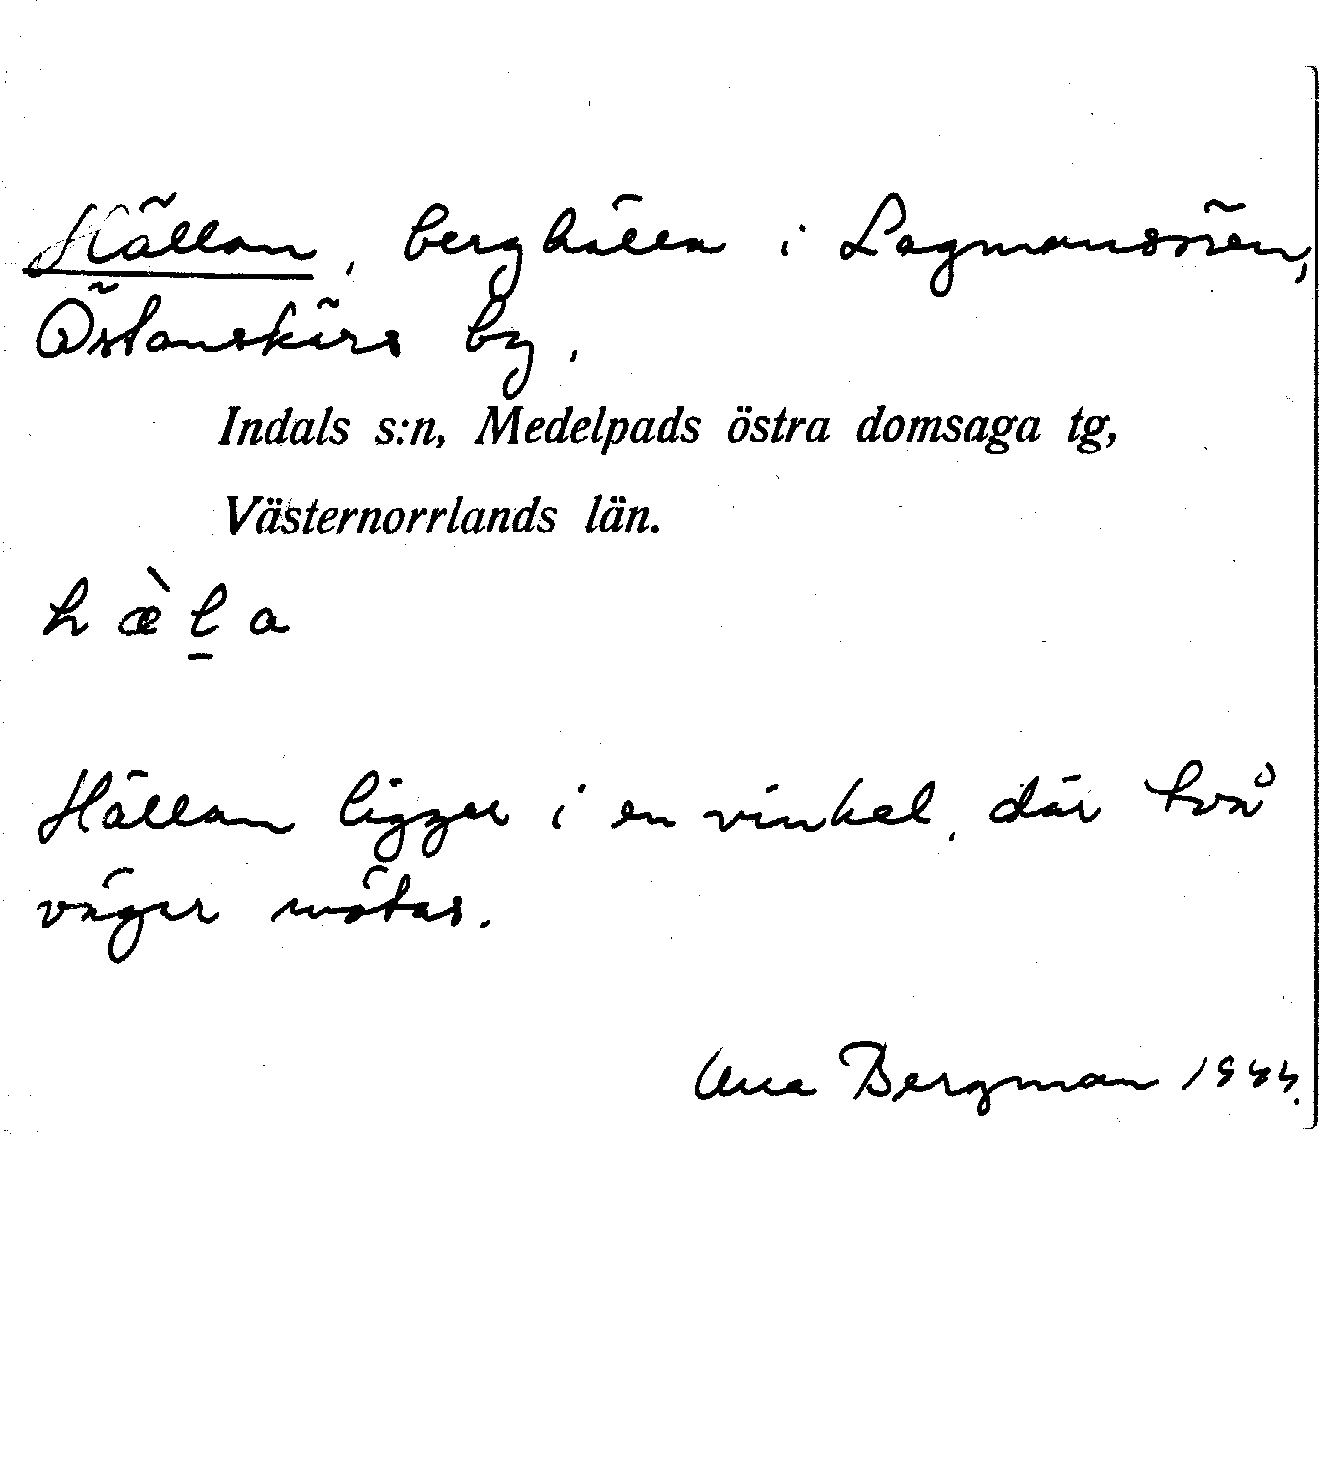 Hällan, berghälla i Lagmansören,
Östanskärs by.
Indals s:n, Medelpads östra domsaga tg,
Västernorrlands län.
h æ̀ l̲ a
Hällan ligger i en vinkel, där två
vägar mötas.
Bergman 1944.